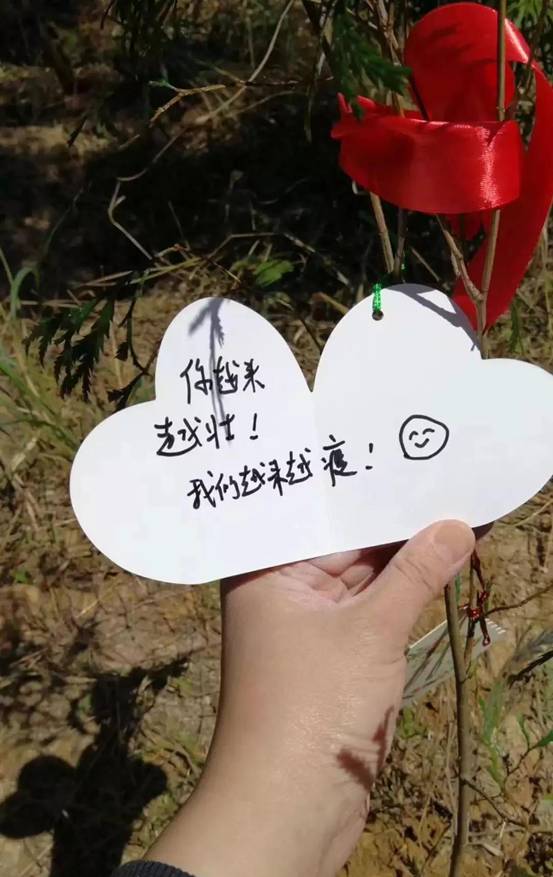 你越来
越壮！
我们越来越瘦！